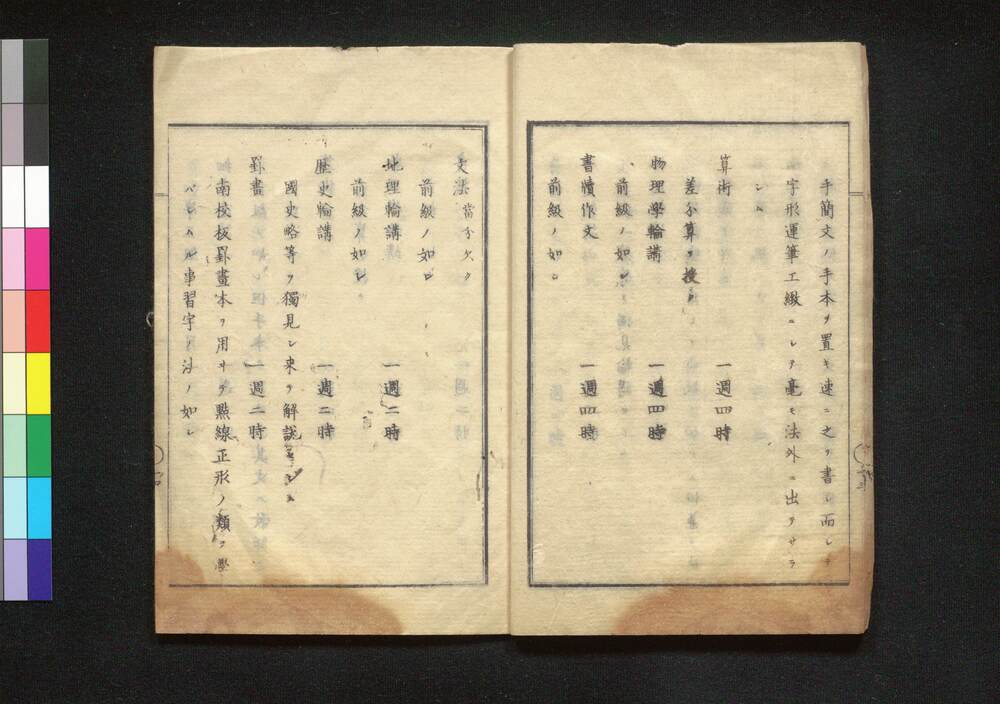 手簡文ノ手本ヲ置キ速ニ之ヲ書シ而シテ
字形運筆工緻ニシテ毫モ法外ニ出テサラ
シム
算術 一週四時
差分算ヲ授
物理學輪講 一週四時
前級ノ如シ
書牘作文 一週四時
前級ノ如シ
文法 當分欠ク
前級ノ如シ
地理輪講 一週二時
前級ノ如シ
歷史輪講 一週二時
國史略等ヲ獨見シ來テ解說セシム
罫畫 一週二時
南校板罫畫本ヲ用井テ點線正形ノ類ヲ學
ハシムル事習字ノ法ノ如シ